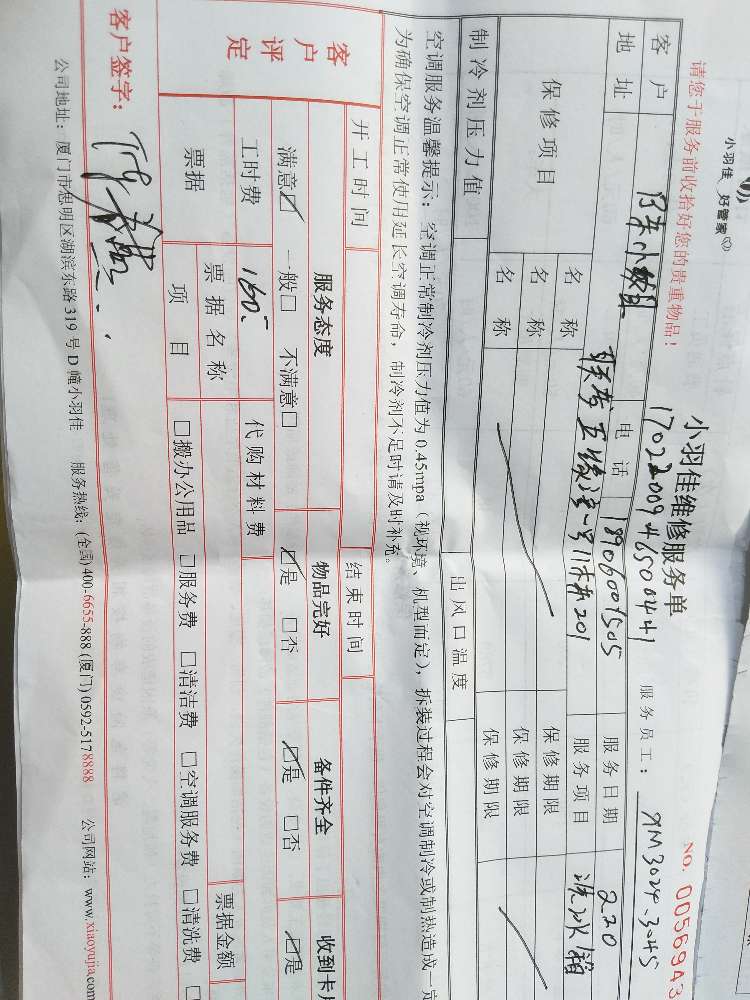 小羽佳 好管家
请您于服务前收拾好您的贵重物品！
小羽佳维修服务单
NO. 0056943
1702200946500441
服务员工： XM3024.3045
客户 电话 18906001505 服务日期 220
地址 服务项目 洗冰箱
保修项目 名称 保修期限
名称 保修期限
名称 保修期限
制冷剂压力值 出风口温度
空调服务温馨提示：空调正常制冷剂压力值为0.45mpa（视环境、机型而定），拆装过程会对空调制冷或制热造成一定
为确保空调正常使用延长空调寿命，制冷剂不足时请及时补充。
开工时间 结束时间
客户评定
服务态度 物品完好 备件齐全 收到卡片
满意☑ 一般□ 不满意□ ☑是 □否 ☑是 □否 ☑是
工时费 160 代购材料费
票据 票据名称 票据金额
项目 □搬办公用品 □服务费 □清洁费 □空调服务费 □清洗费
客户签字：
公司地址：厦门市思明区湖滨东路319号D幢小羽佳 服务热线：(全国)400-6655-888 (厦门)0592-5178888 公司网站：www.xiaoyujia.com